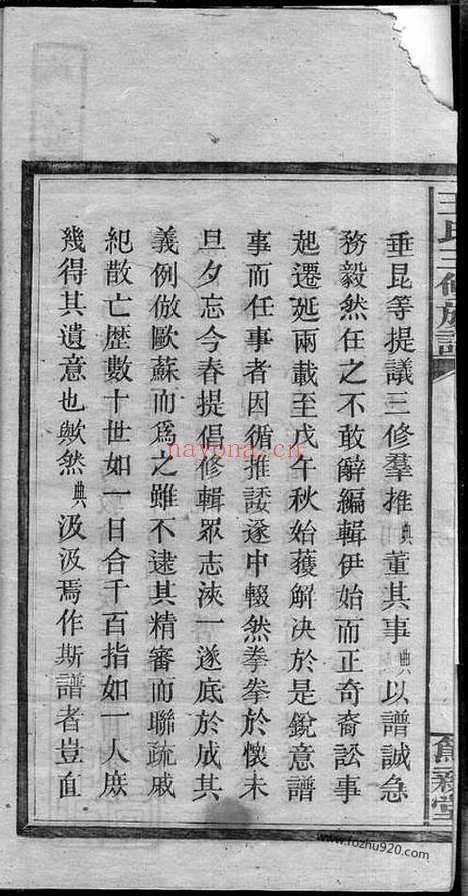 王氏三修族譜
垂昆等提議三修羣推典董其事典以譜誠急
務毅然任之不敢辭編輯伊始而正奇裔訟事
起遷延兩載至戊午秋始獲解决於是銳意譜
事而任事者因循推諉遂中輟然拳拳於懷未
旦夕忘今春提倡修輯眾志浹一遂底於成其
義例倣歐蘇而爲之雖不逮其精審而聯疏戚
紀散亡歴數十世如一日合千百指如一人庶
幾得其遺意也歟然典汲汲焉作斯譜者豈直
nayona.cn
www.fozhu920.com